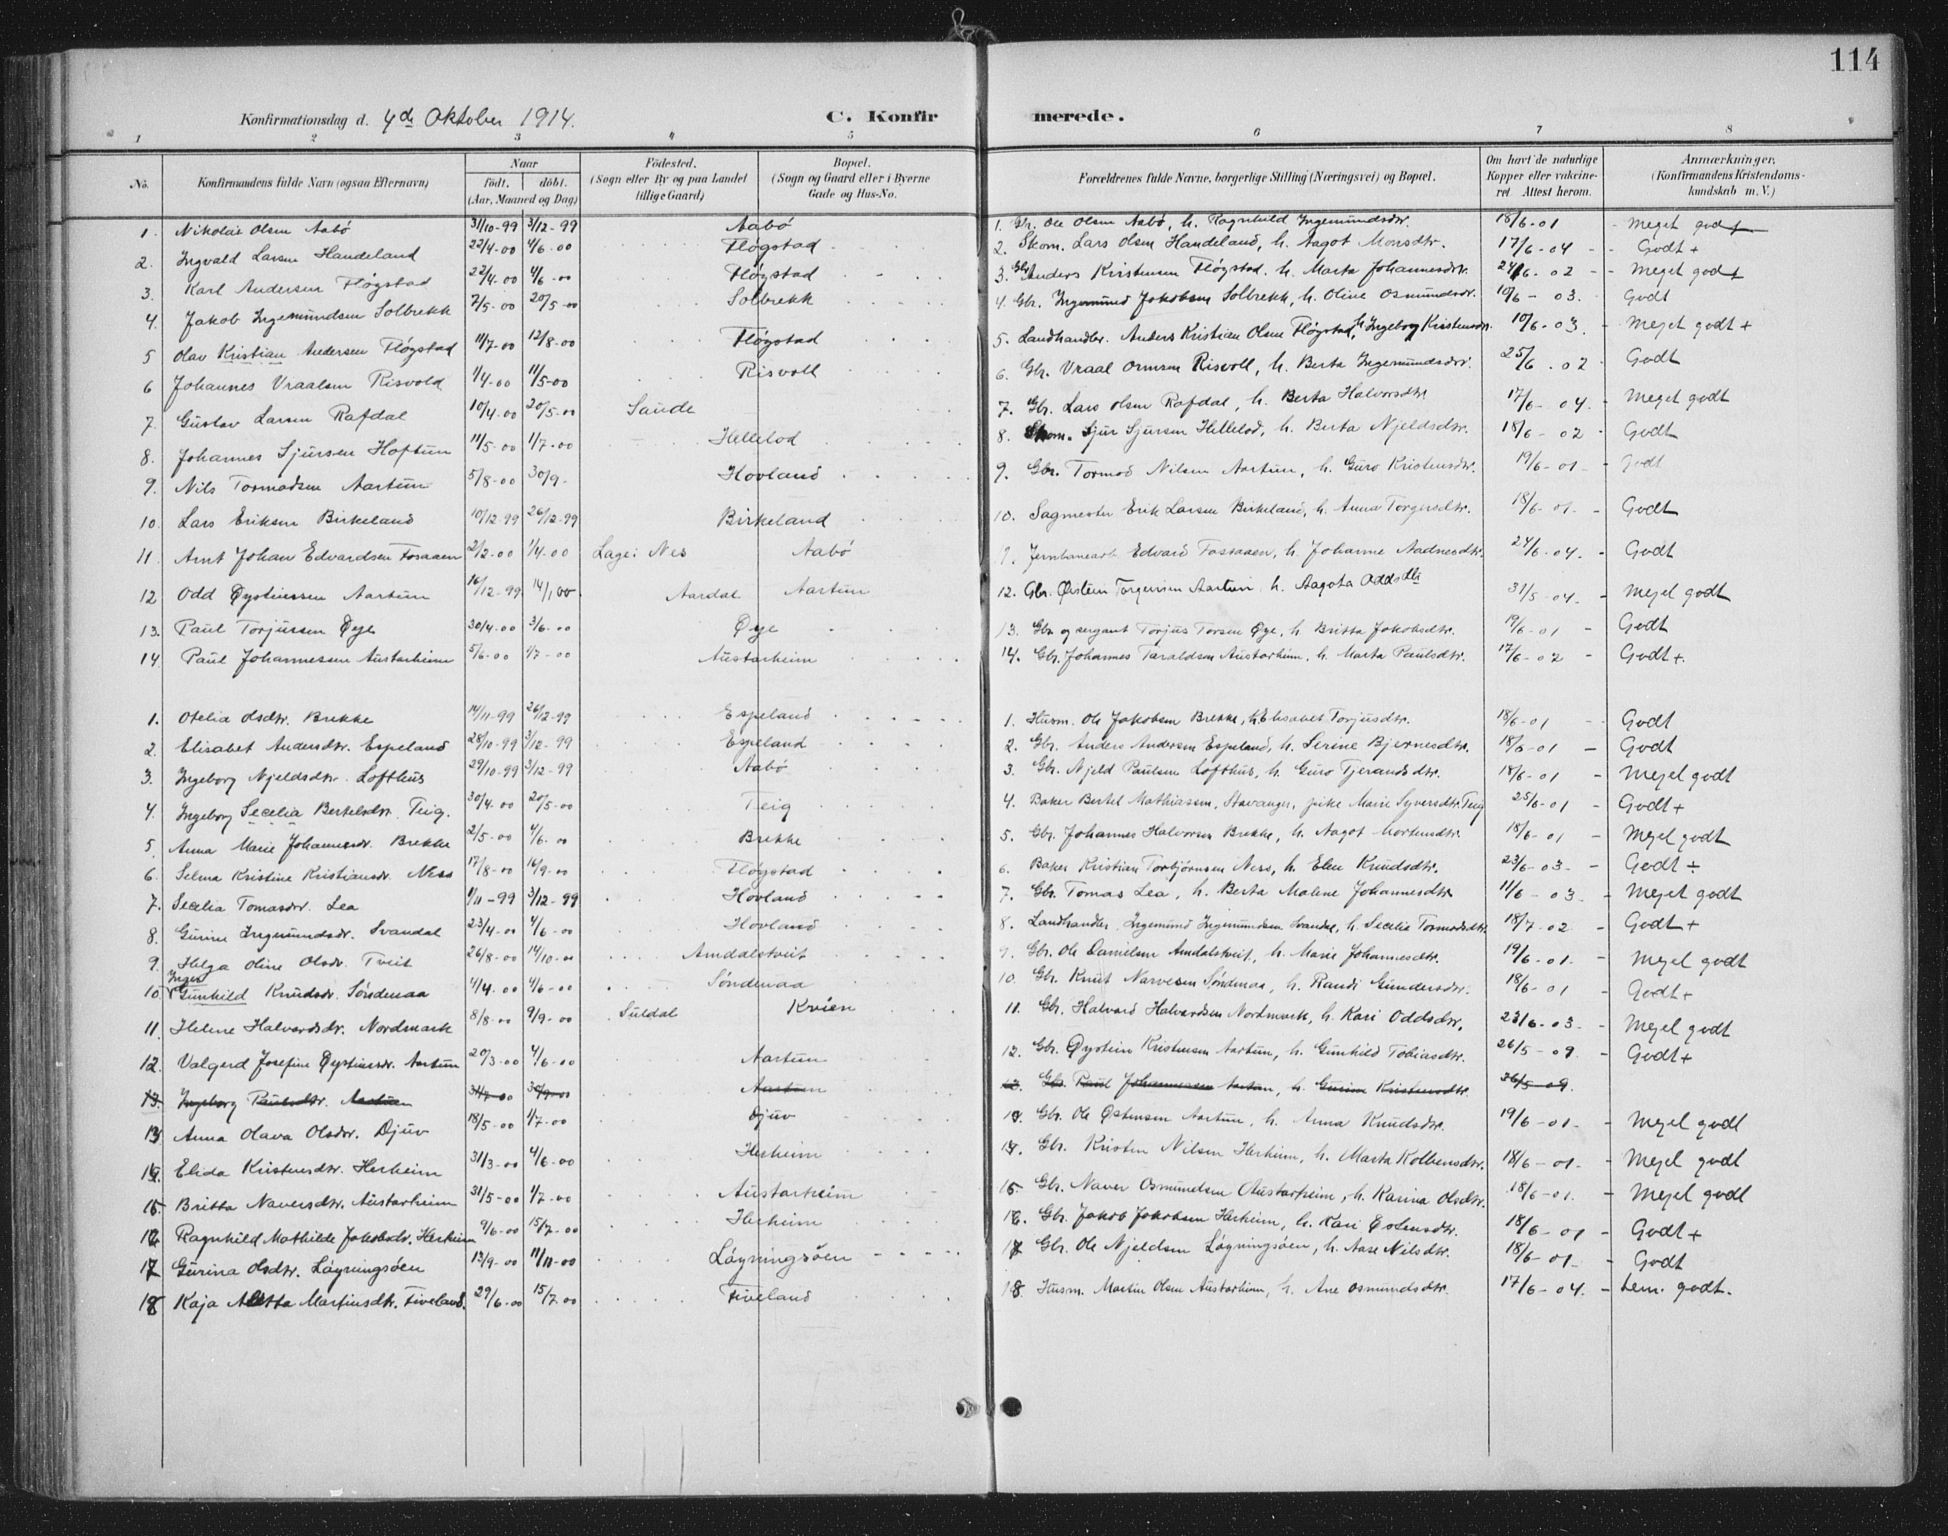 114
Konfirmationsdag d. 4de Oktober 1914. C. Konfirmerede.
1 2 3 4 5 6 7 8
No. Konfirmandens fulde Navn (ogsaa Efternavn) Naar födt, döbt. (Aar, Maaned og Dag) Födested. (Sogn eller By og paa Landet tillige Gaard) Bopæl. (Sogn og Gaard eller i Byerne Gade og Hus-No. Forældrenes fulde Navne, borgerlige Stilling (Næringsvei) og Bopæl. Om havt de naturlige Kopper eller vakcineret Attest herom. Anmærkninger. (Konfirmandens Kristendomskundskab m. V.)
1. Nikolai Olsen Aabö 31/10-99 3/12-99 Aabö 1. Gbr. Ole Olsen Aabö, h. Ragnhild Ingemundsdtr. 18/6-01 Meget godt
2. Ingvald Larsen Handeland 22/4-00 4/6-00 Flögstad 2. Skom. Lars Olsen Handeland, h. Aagot Monsdtr. 17/6-04 Godt +
3. Karl Andersen Flögstad 22/4-00 4/6-00 Flögstad 3. Gbr. Anders Kristensen Flögstad, h. Marta Johannesdtr. 24/6-02 Meget godt
4. Jakob Ingemundsen Solbrekk 7/5-00 20/5-00 Solbrekk 4. Gbr. Ingemund Jakobsen Solbrekk, h. Oline Osmundsdr. 10/6-03. Godt
5 Olav Kristian Andersen Flögstad 11/7-00 12/8-00 Flögstad 5. Landhandler. Anders Kristian Olsen Flögstad, h. Ingeborg Kristensdr. 10/6-03. Meget godt +
6 Johannes Vraalsen Risvold 1/4-00 11/5-00 Risvoll 6. Gbr. Vraal Ormsen Risvoll, h. Berta Ingemundsdr. 25/6.02 Godt
7. Gustav Larsen Rafdal 10/4-00 20/5-00 Saude 7. Gbr. Lars Olsen Rafdal, h. Berta Halvorsdtr. 17/6-04. Meget godt
8. Johannes Sjursen Hoftun 11/5-00 1/7-00 Hellelod 8. Skom. Sjur Sjursen Hellelod, h. Berta Njeldsdtr. 18/6-02 Godt
9. Nils Tormodsen Aartun 5/8-00 30/9- Hovland 9. Gbr. Tormod Nilsen Aartun, h. Guro Kristensdtr. 19/6-01 Godt
10. Lars Eriksen Birkeland 10/12-99 26/12-99 Birkeland 10. Sagmester Erik Larsen Birkeland, h. Anna Torgersdtr. 18/6-01. Godt
11. Arnt Johan Edvardsen Fosaaen 2/2-00 1/4-00 Lage: Nes Aabö Jernbanearb. Edvard Fossaaen, h. Johanne Aadnesdtr. 24/6-04. Godt
12 Odd Øystinssen Aartun 16/12-99 14/1 00 Aardal Aartun 12. Gbr. Øistein Torgersen Aartun, h. Aagota Oddsdtr 31/5-04. Meget godt
13. Paul Torjussen Øye 30/4-00 3/6-00 Øye 13. Gbr og sergant Torjus Torsen Øye, h. Britta Jakobsdtr. 19/6-01 Godt
14. Paul Johannessen Austarheim 5/6-00 1/7-00 Austarheim 14. Gbr. Johannes Taraldsen Austarheim, h. Marta Paulsdtr. 17/6-02 Godt +.
1. Otelia Olsdtr. Brekke 14/11-99 26/12-99 Espeland 1. Husm. Ole Jakobsen Brekke, h. Elisabet Torjusdtr. 18/6-01 Godt
2. Elisabet Andersdtr. Espeland 28/10-99 3/12-99 Espeland 2. Gbr. Anders Andersen Espeland, h. Serine Bjernesdtr. 18/6-01 Godt
3. Ingeborg Njeldsdtr. Lofthus 29/10-99 3/12-99 Aabö 3. Gbr. Njeld Paulsen Lofthus, h. Guro Tjerandsdtr. 18/6-01 Meget godt
4. Ingeborg Secelia Bertelsdtr. Teig. 30/4.00 20/5-00 Teig 4. Baker Bertel Mathiassen, Stavanger, pike Marie Syversdtr. Teig 25/6-01 Godt +
5. Anna Marie Johannesdr. Brekke 2/5-00 4/6-00 Brekke 5. Gbr. Johannes Halvorsen Brekke, h. Aagot Mortensdtr. 18/6-01 Meget godt
6. Selma Kristine Kristiansdr. Ness 17/8-00 16/9-00 Flögstad 6. Baker Kristian Torbjörnsen Ness, h. Elen Knudsdtr. 23/6-03. Godt ÷
7. Secelia Tomasdr. Lea 1/11-99 3/12-99 Hovland 7. Gbr. Tomas Lea, h. Berta Malene Johannesdtr. 11/6-03. Meget godt
8. Gurine Ingemundsdr. Svandal 23/4-00 4/6-00 Hovland 8. Landhandler Ingemund Ingemundsen Svandal, h. Secelia Tormodsdtr 18/7-02 Godt +
9. Helga Oline Olsdr. Tveit 26/8-00 14/10-00 Amdalstveit 9. Gbr. Ole Danielsen Amdalstveit, h. Marie Johannesdtr. 19/6-01. Meget godt
10. Inger Gunhild Knudsdr. Söndenaa 1/4.00 4/6-00 Söndenaa 10. Gbr. Knut Narvesen Söndenaa, h. Randi Gundersdtr. 18/6-01 Godt +
11. Helene Halvardsdr. Nordmark 8/8-00 9/9-00 Suldal Kvien 11. Gbr. Halvard Halvardsen Nordmark, h. Kari Oddsdtr. 23/6-03. Meget godt
12. Valgerd Josefine Øystinsdr. Aartun 20/3-00 4/6-00 Aartun 12. Gbr. Øystein Kristensen Aartun, h. Gunhild Tobiasdtr. 26/5-09. Godt +
13. Ingeborg Paulsdtr. Aartun 30/9-00 Aartun Gbr. Paul Johannessen Aartun, h. Gurine Kristensdtr. 26/5-09.
13 Anna Olava Olsdr. Djuv 18/5-00 1/7-00 Djuv 13. Gbr. Ole Östensen Aartun, h. Anna Knudsdtr. 19/6-01. Meget godt
14. Elida Kristensdtr. Herheim 31/3-00 4/6-00 Herheim 14. Gbr. Kristen Nilsen Herheim, h. Marta Kolbensdtr. 18/6-01. Meget godt
15 Britta Naversdtr. Austarheim 31/5-00 1/7-00 Austarheim 15. Gbr. Naver Osmundsen Austarheim, h. Karina Olsdtr. 18/6-01. Meget godt
16 Ragnhild Mathilde Jakobsdr. Herheim 9/6-00 15/7-00 Herheim 16. Gbr. Jakob Jakobsen Herheim, h. Kari Östensdtr. 18/6-01 Godt +
17 Gurina Olsdtr. Löyningsöen 13/9-00 11/11-00 Löyningsöen 17 Gbr. Ole Njeldsen Löyningsöen, h. Aase Nilsdtr. 18/6-01. Godt
18 Kaja Aletta Martinsdtr. Fiveland. 29/6-00 15/7 00 Fiveland 18. Husm. Martin Olsen Austarheim, h. Ane Osmundsdtr. 17/6-04. Tem. godt.